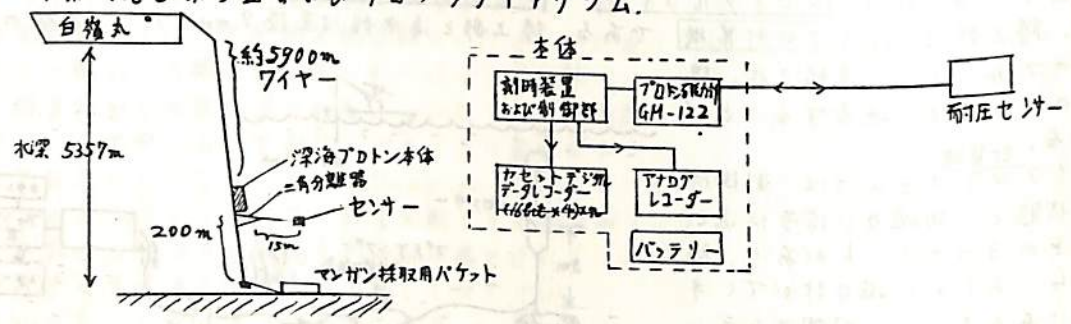 ブロックダイヤグラム.
白嶺丸
約5900m
ワイヤー
水深 5357m
深海プロトン本体
センサー
200m
15m
マンガン採取用バケット
本体
刻時装置
および制御部
GM-122
カセットデジタル
データレコーダー
アナログ
レコーダー
バッテリー
耐圧センサー